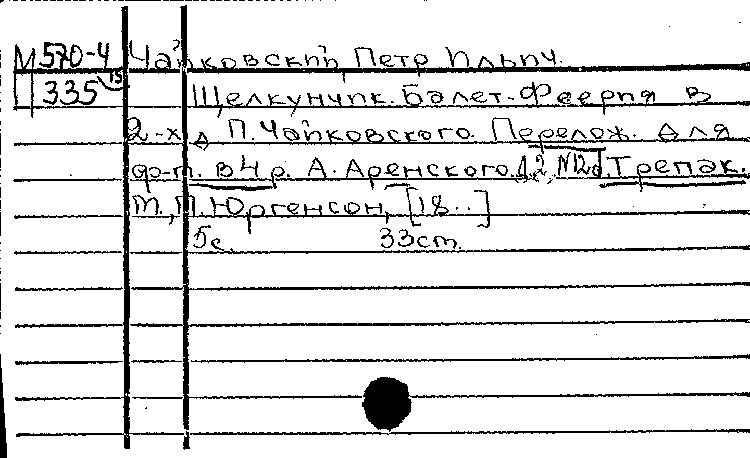 М 570-4 Чайковский, Петр Ильич.
335 15 Щелкунчик. Балет-Феерия в
2-х д. П. Чайковского. Перелож. для
фр-п. в 4 р. А. Аренского. Д.2, №12d. Трепак.
М., П. Юргенсон, [18..]
5с. 33cm.